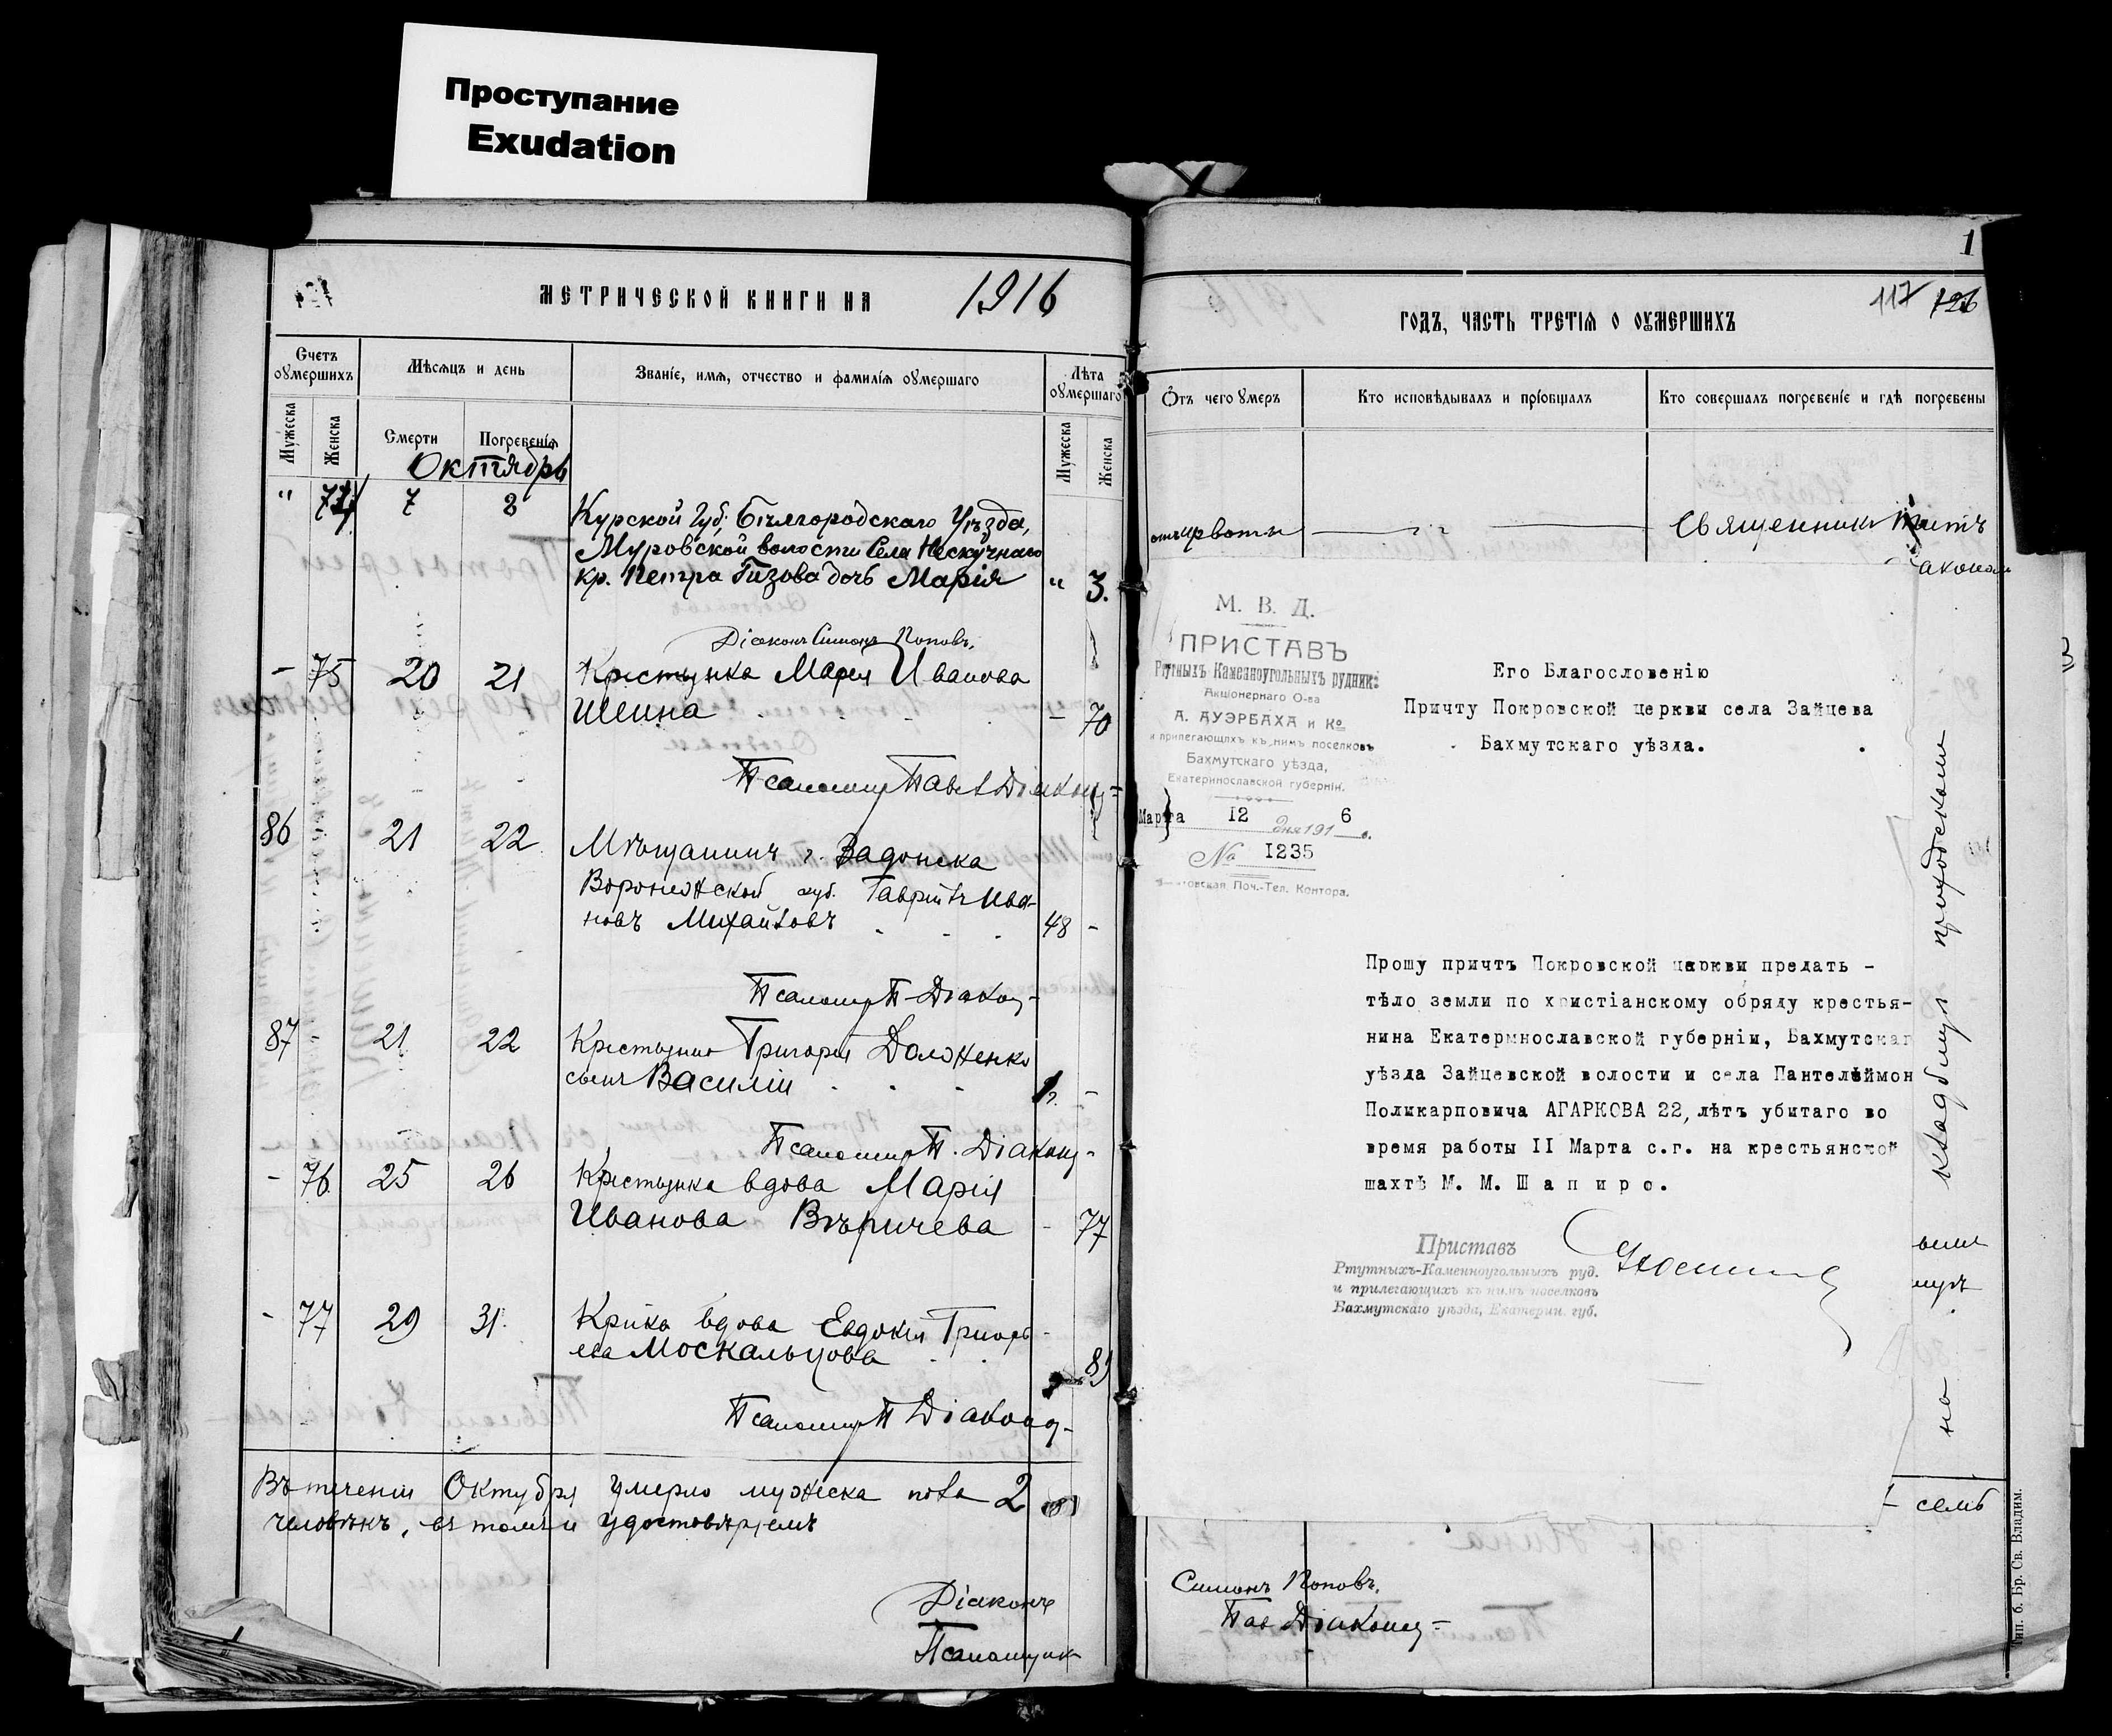 Проступание
Exudation
МЕТРИЧЕСКОЙ КНИГИ НА 1916
Счетъ оумершихъ
Мѣсяцъ и день
Званіе, имя, отчество и фамилія оумершаго
Лѣта оумершаго
Мужеска
Женска
Смерти
Погребенія
Мужеска
Женска
Октябрь
" 74 7 8 Курской Губ. Бѣлгородскаго Уѣзда,
Муровской волости Села Нескучнаго
кр. Петра Гизова дочь Марія " 3.
Діаконъ Симонъ Поповъ.
- 75 20 21 Крестьянка Марія Иванова
Шеина - 70
86 21 22 Мѣщанинъ г. Задонска
Воронежской губ. Гавріилъ Ива-
новъ Михайловъ 48 -
87 21 22 Крестьянина Григорія Долженко
сынъ Василій -
- 76 25 26 Крестьянка вдова Марія
Иванова Вѣричева - 77
- 77 29 31. вдова Евдокія Григорь-
ева Москальцова
Въ теченіи Октября умерло мужеска пола 2
человѣкъ, въ томъ и удостовѣряемъ
Діаконъ
Псаломщик
1
117 126
ГОДЪ, ЧАСТЬ ТРЕТІЯ О ОУМЕРШИХЪ
Отъ чего умеръ
Кто исповѣдывалъ и пріобщалъ
Кто совершалъ погребеніе и гдѣ погребены
Священникъ
М. В. Д.
ПРИСТАВЪ
Ртутныхъ Каменноугольныхъ рудник
Акціонернаго О-ва
А. АУЭРБАХА и Ко
и прилегающихъ къ нимъ поселковъ
Бахмутскаго уѣзда,
Екатеринославской губерніи.
Марта 12 дня 1916 г.
№ 1235
Поч.-Тел. Контора.
Его Благословенію
Причту Покровской церкви села Зайцева
Бахмутскаго уѣзда.
Прошу причтъ Покровской церкви предать -
тѣло земли по христіанскому обряду крестья-
нина Екатеринославской губерніи, Бахмутскаг
уѣзда Зайцевской волости и села Пантелѣймон
Поликарповича АГАРКОВА 22, лѣтъ убитаго во
время работы II Марта с.г. на крестьянской
шахтѣ М. М. Шапиро.
Приставъ
Ртутныхъ-Каменноугольныхъ руд.
и прилегающихъ къ нимъ поселковъ
Бахмутскаго уѣзда, Екатерин. губ.
на кладбищѣ приходскомъ
- семь
Симонъ Поповъ.
Тип. б. Бр. Св. Владим.